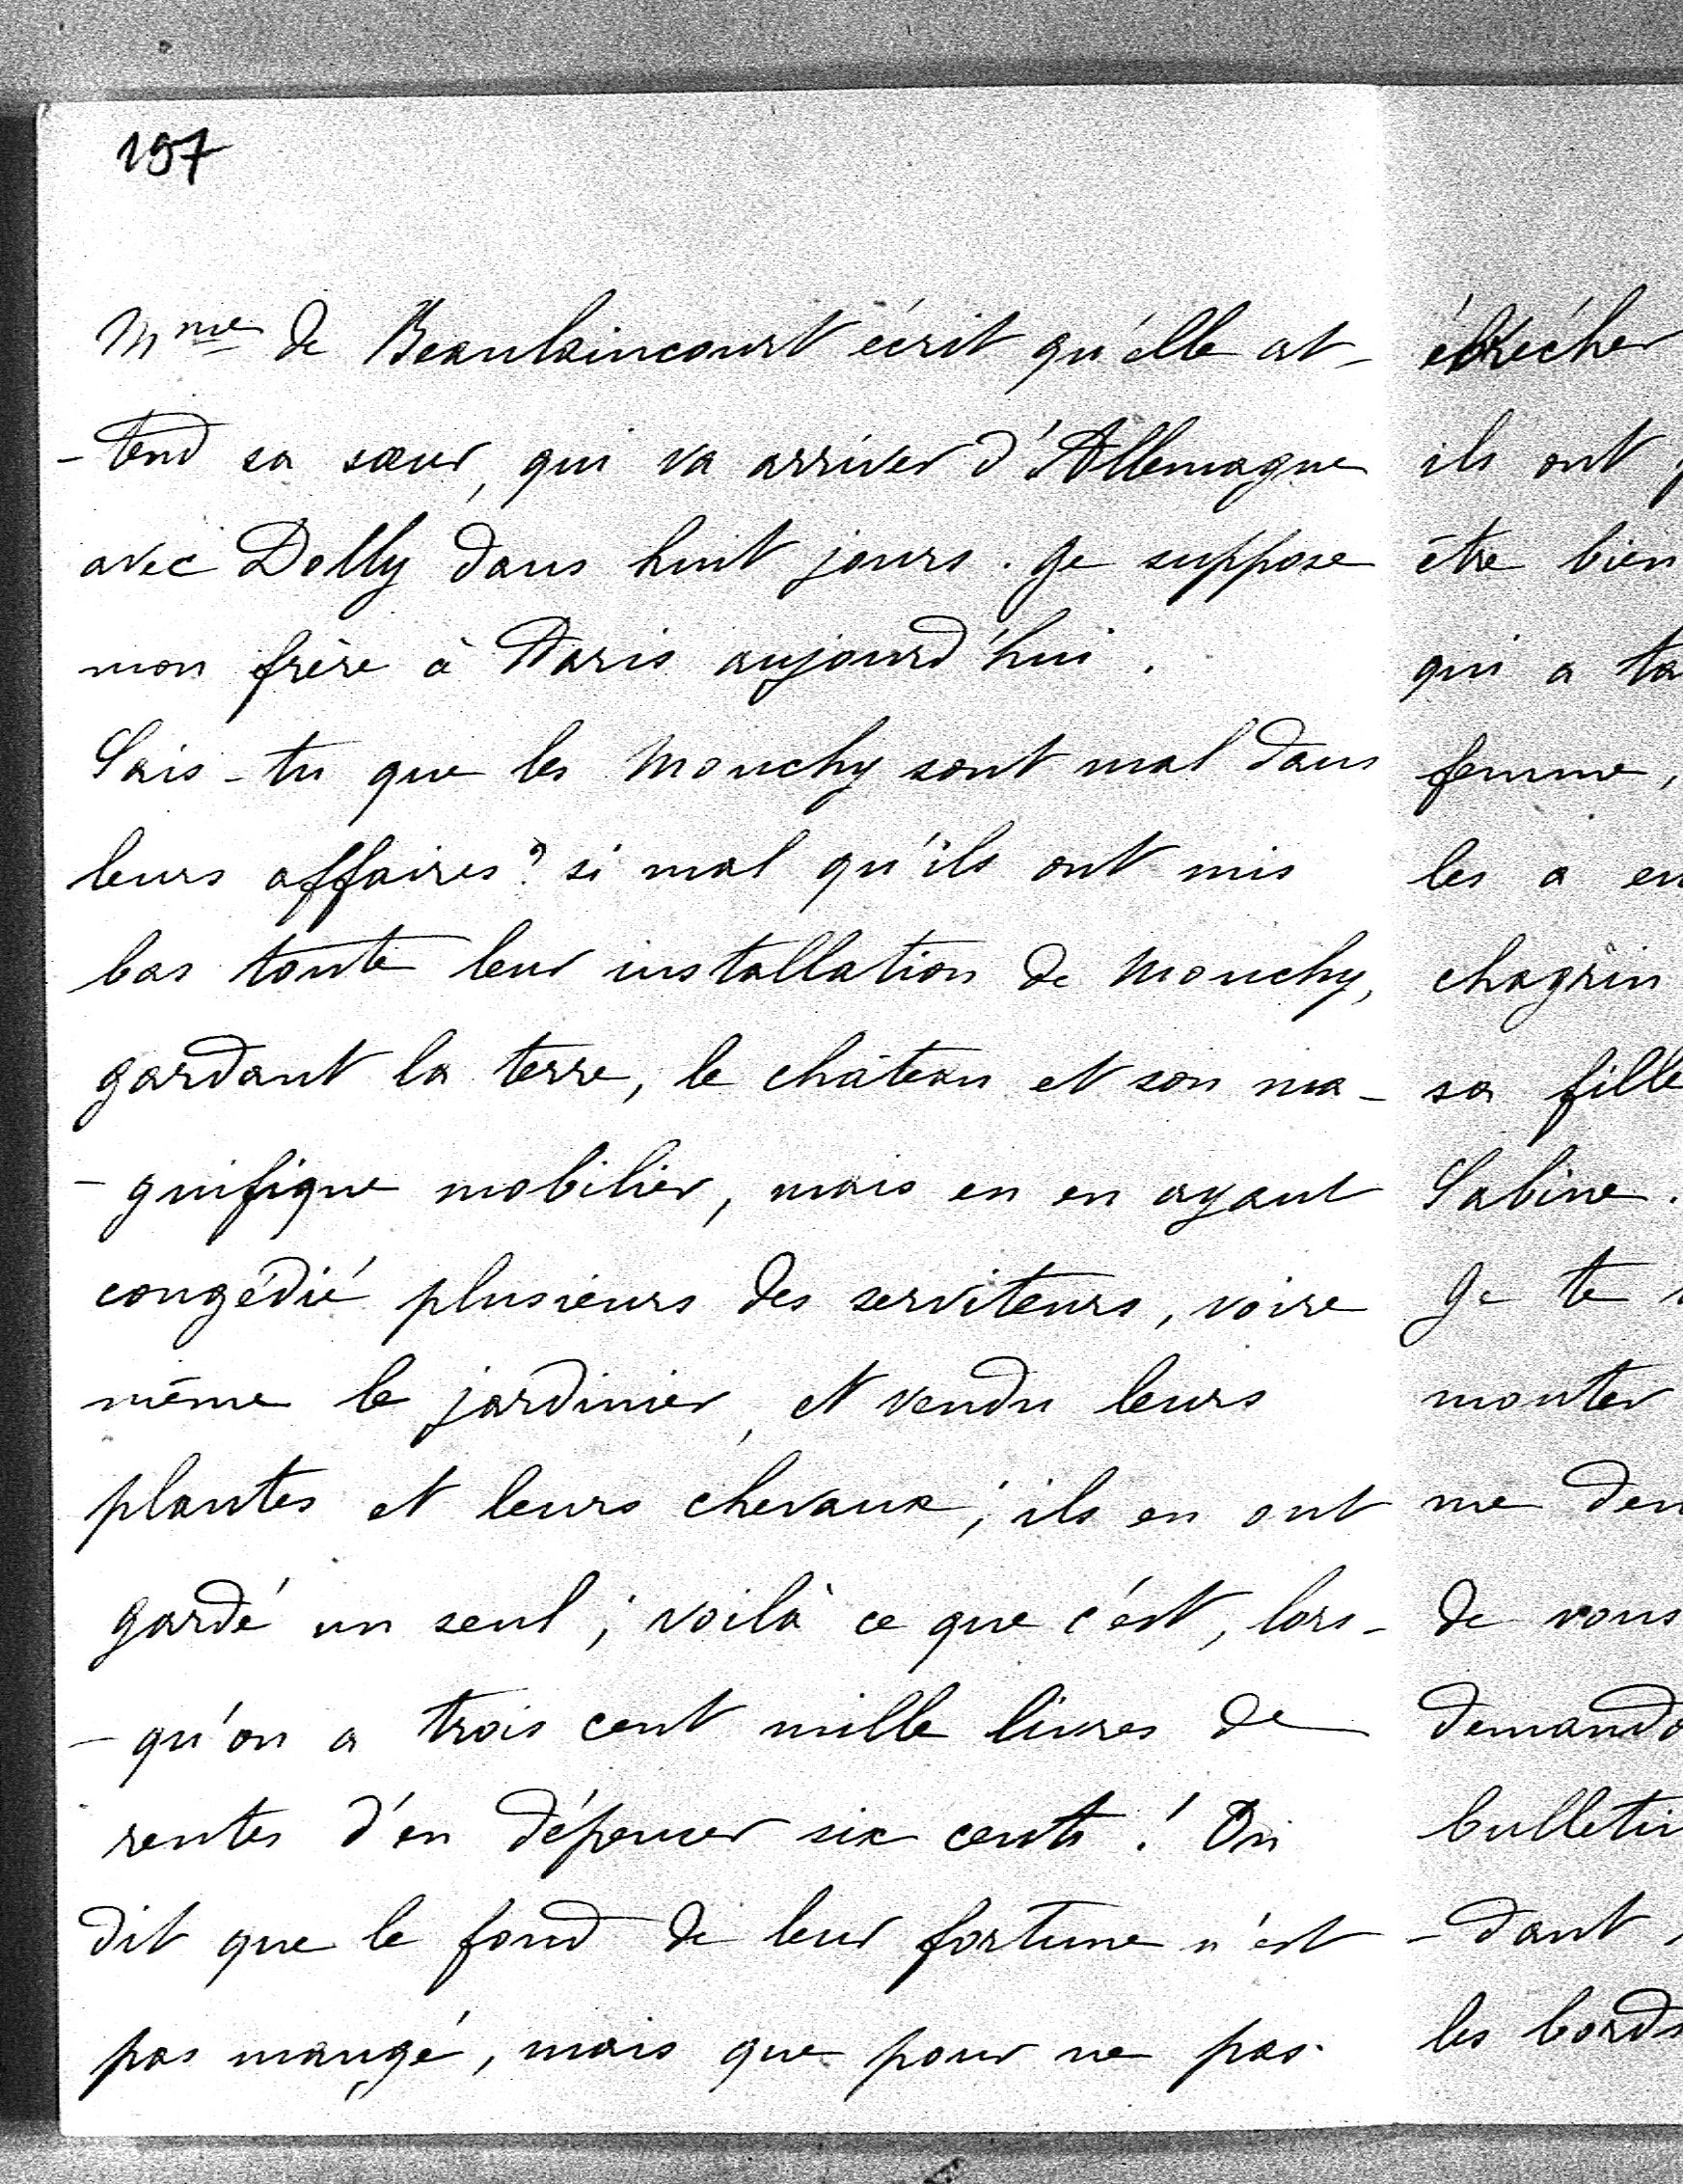 197
Mme de Beaulaincourt écrit qu'elle at-
-tend sa sœur, qui va arriver d'Allemagne
avec Dolly dans huit jours. Je suppose
mon frère à Paris aujourd'hui.
Sais-tu que les Mouchy sont mal dans
leurs affaires? si mal qu'ils ont mis
bas toute leur installation de Mouchy,
gardant la terre, le château et son ma-
-gnifique mobilier, mais en en ayant
congédié plusieurs des serviteurs, voire
même le jardinier, et vendu leurs
plantes et leurs chevaux; ils en ont
gardé un seul; voilà ce que c'est, lors-
-qu'on a trois cent mille livres de
rentes d'en dépenser six cents! On
dit que le fond de leur fortune n'est
pas mangé, mais que pour ne pas
ébrécher
ils ont
être bien
qui a ta
femme,
les a en
chagrin
sa fille
Sabine.
Je te
monter
me dem
de vous
demande
bulletin
-dant
les bords